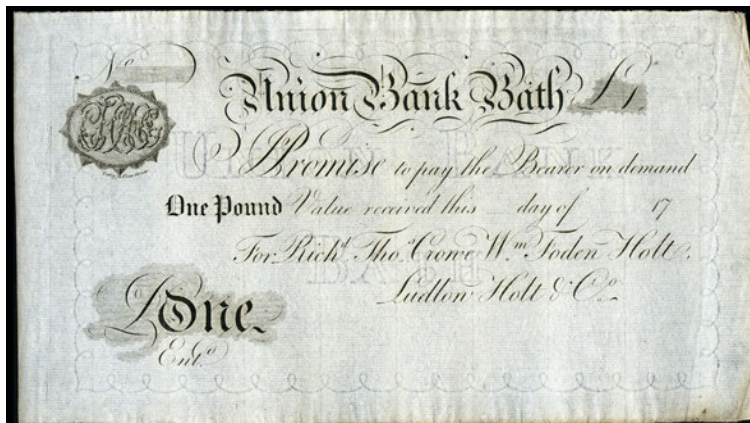 No
Union Bank Bath £1
I Promise to pay the Bearer on demand
One Pound Value received this day of 17
For Richd Thos Crowe Wm Foden Holt,
Ludlow Holt & Co.
£ One
Entd